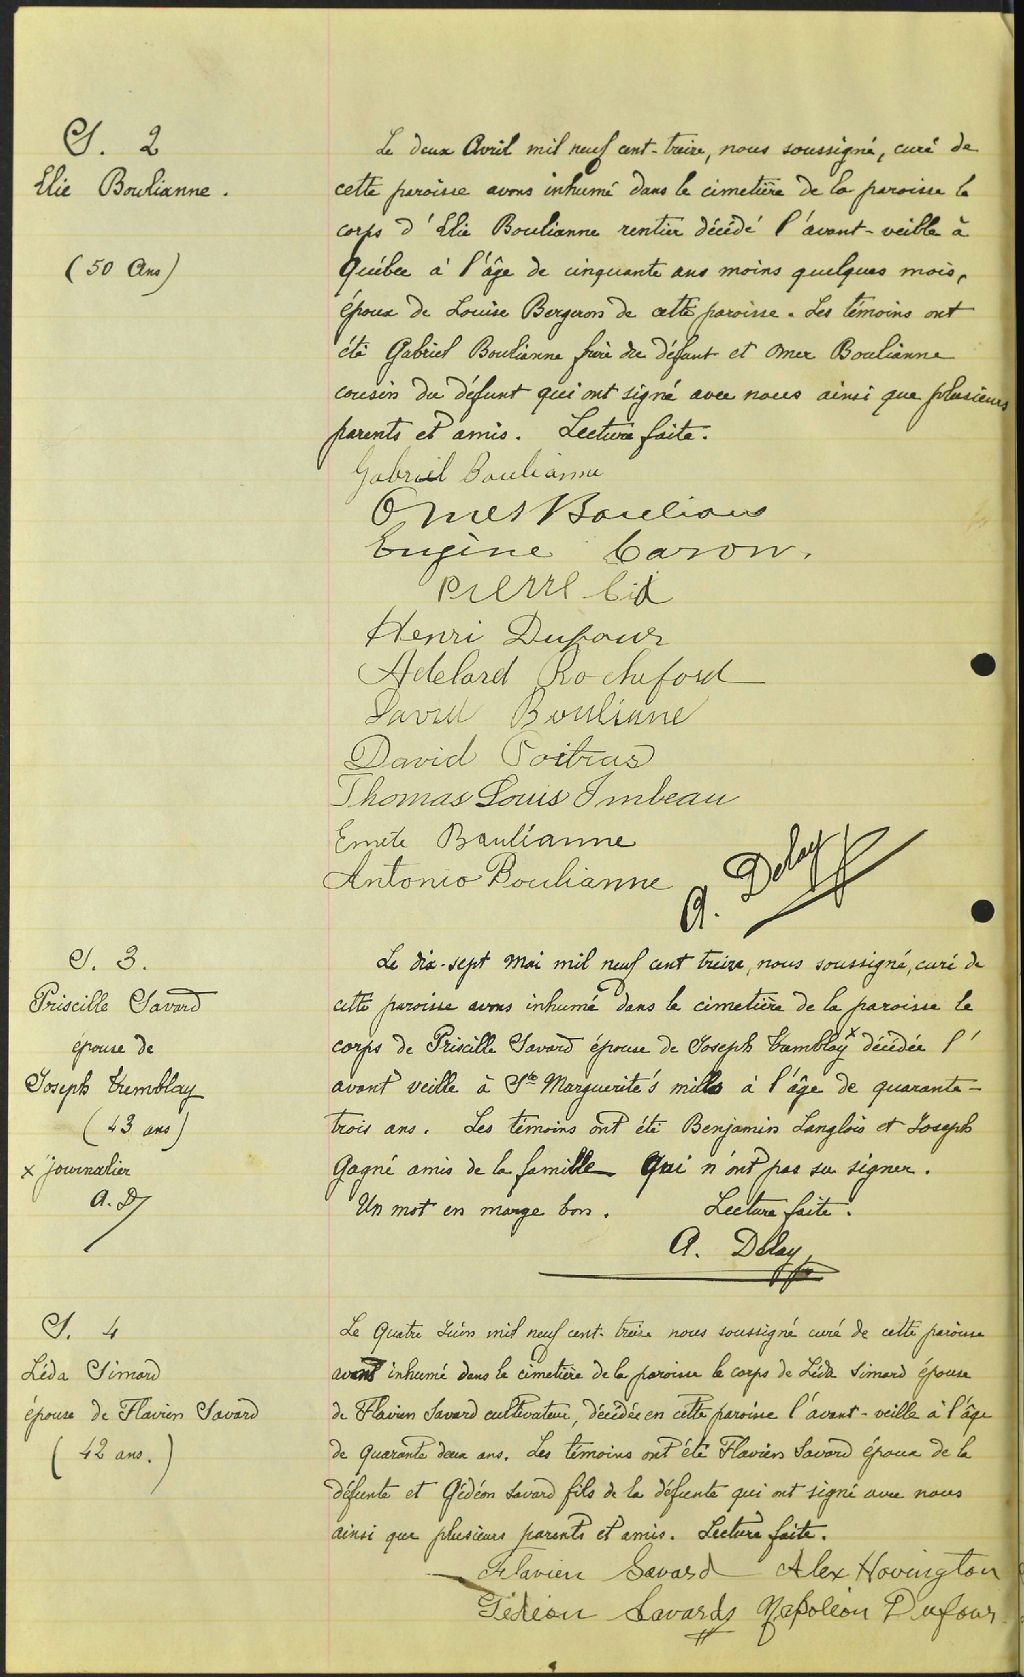 S. 2
Elie Boulianne.
(50 Ans)
Le deux Avril mil neuf cent-treize, nous soussigné, curé de
cette paroisse avons inhumé dans le cimetière de la paroisse le
corps d'Elie Boulianne rentier décédé l'avant-veille à
Québec à l'âge de cinquante ans moins quelques mois,
époux de Louise Bergeron de cette paroisse. Les témoins ont
été Gabriel Boulianne frère du défunt et Omer Boulianne
cousin du défunt qui ont signé avec nous ainsi que plusieurs
parents et amis. Lecture faite.
Gabriel Boulianne
Omer Boulianne
Eugène Caron.
Pierre
Henri Dufour
Adelard Rocheford
David Boulianne
David Poitras
Thomas Louis Imbeau
Boulianne
Antonio Boulianne
A. Delay
S. 3.
Priscille Savard
épouse de
Joseph Tremblay
(43 ans)
x journalier
A. D
Le dix-sept Mai mil neuf cent treize, nous soussigné, curé de
cette paroisse avons inhumé dans le cimetière de la paroisse le
corps de Priscille Savard épouse de Joseph Tremblay x décédée l'
avant veille à Ste Marguerite's mills à l'âge de quarante-
trois ans. Les témoins ont été Benjamin Langlois et Joseph
Gagné amis de la famille qui n'ont pas su signer.
Un mot en marge bon. Lecture faite.
A. Delay
S. 4
Léda Simard
épouse de Flavien Savard
(42 ans.)
Le Quatre Juin mil neuf cent-treize nous soussigné curé de cette paroisse
avons inhumé dans le cimetière de la paroisse le corps de Léda Simard épouse
de Flavien Savard cultivateur, décédée en cette paroisse l'avant-veille à l'âge
de quarante deux ans. Les témoins ont été Flavien Savard époux de la
défunte et Gédéon Savard fils de la défunte qui ont signé avec nous
ainsi que plusieurs parents et amis. Lecture faite.
Flavien Savard Alex Hovington
Gédéon Savard Napoléon Dufour